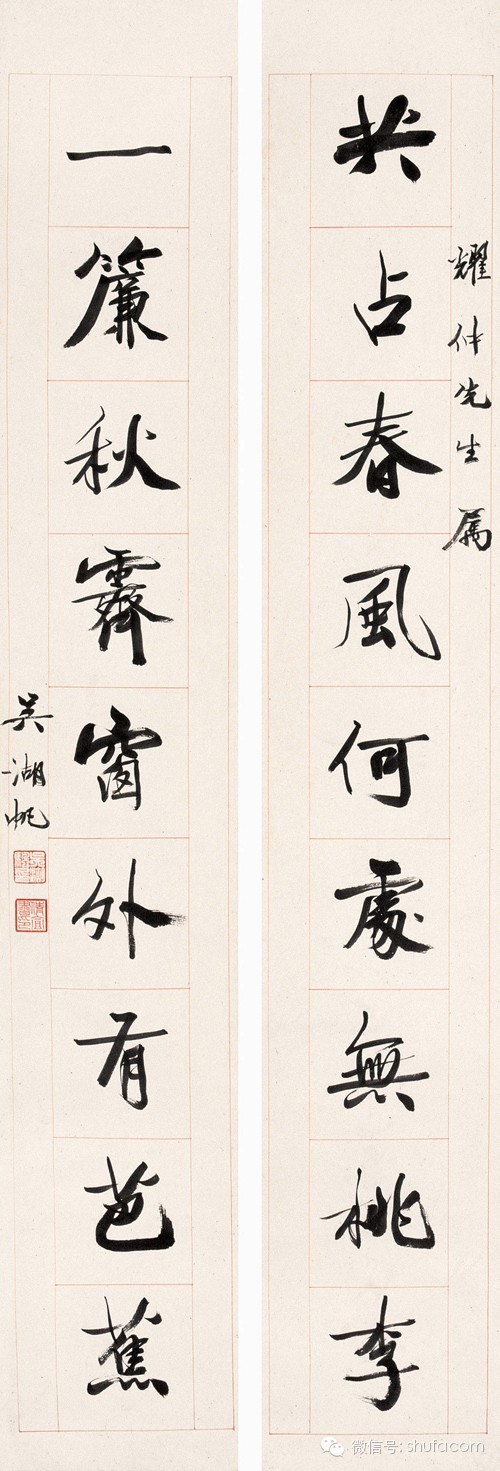 耀仲先生属
共占春風何處無桃李
一簾秋霽窗外有芭蕉
吳湖帆
微信号: shufacom